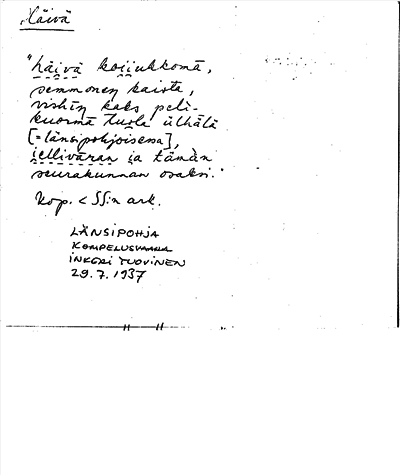 Häivä
"häivä koijukkomä,
semmonen kaista,
viskin kaks peli-
kuormä tuola ülhälä
[= länsipohjoisessa],
jellivāran ja tämän
seurakunnan osaksi."
kop. < SS:n ark.
LÄNSIPOHJA
KOMPELUSVAARA
INKERI TUOVINEN
29.7.1937